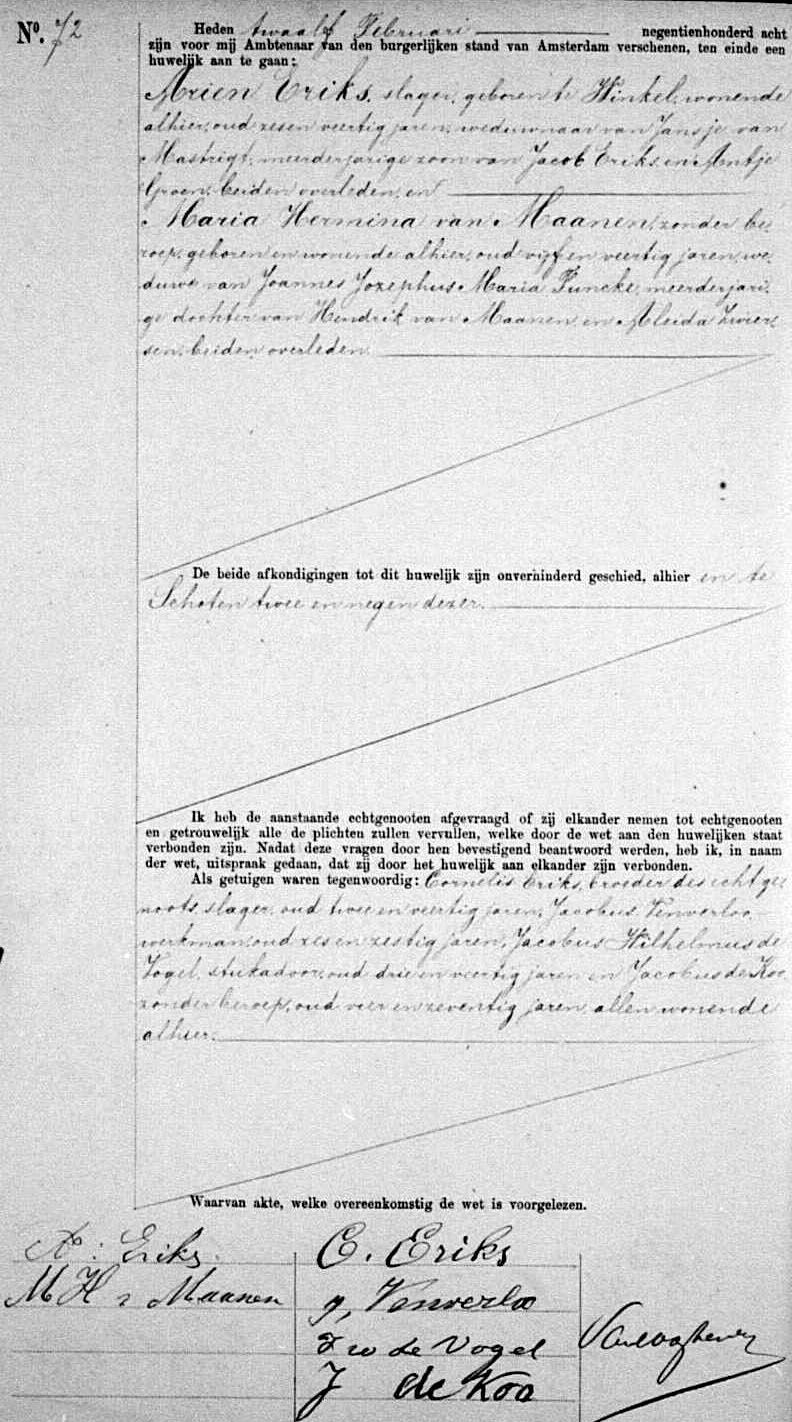 No. 72
Heden twaalf Februari negentienhonderd acht
zijn voor mij Ambtenaar van den burgerlijken stand van Amsterdam verschenen, ten einde een
huwelijk aan te gaan:
Arien Eriks, slager, geboren te Winkel, wonende
alhier, oud zes en veertig jaren, weduwnaar van Jansje van
Mastrigt, meerderjarige zoon van Jacob Eriks en Antje
Groen, beiden overleden, en
Maria Hermina van Maanen, zonder be-
roep, geboren en wonende alhier, oud vijf en veertig jaren, we-
duwe van Joannes Jozephus Maria Funcke, meerderjari-
ge dochter van Hendrik van Maanen en Aleida Zwier-
sen, beiden overleden.
De beide afkondigingen tot dit huwelijk zijn onverhinderd geschied, alhier en te
Schoten twee en negen dezer.
Ik heb de aanstaande echtgenooten afgevraagd of zij elkander nemen tot echtgenooten
en getrouwelijk alle de plichten zullen vervullen, welke door de wet aan den huwelijken staat
verbonden zijn. Nadat deze vragen door hen bevestigend beantwoord werden, heb ik, in naam
der wet, uitspraak gedaan, dat zij door het huwelijk aan elkander zijn verbonden.
Als getuigen waren tegenwoordig: Cornelis Eriks, broeder des echtge-
noots, slager, oud twee en veertig jaren, Jacobus Venverloo,
werkman, oud zes en zestig jaren, Jacobus Wilhelmus de
Vogel, stukadoor, oud drie en veertig jaren en Jacobus de Koo,
zonder beroep, oud vier en zeventig jaren, allen wonende
alhier.
Waarvan akte, welke overeenkomstig de wet is voorgelezen.
A: Eriks. C. Eriks
M H v Maanen J, Venverloo
J W de Vogel
J de Koo